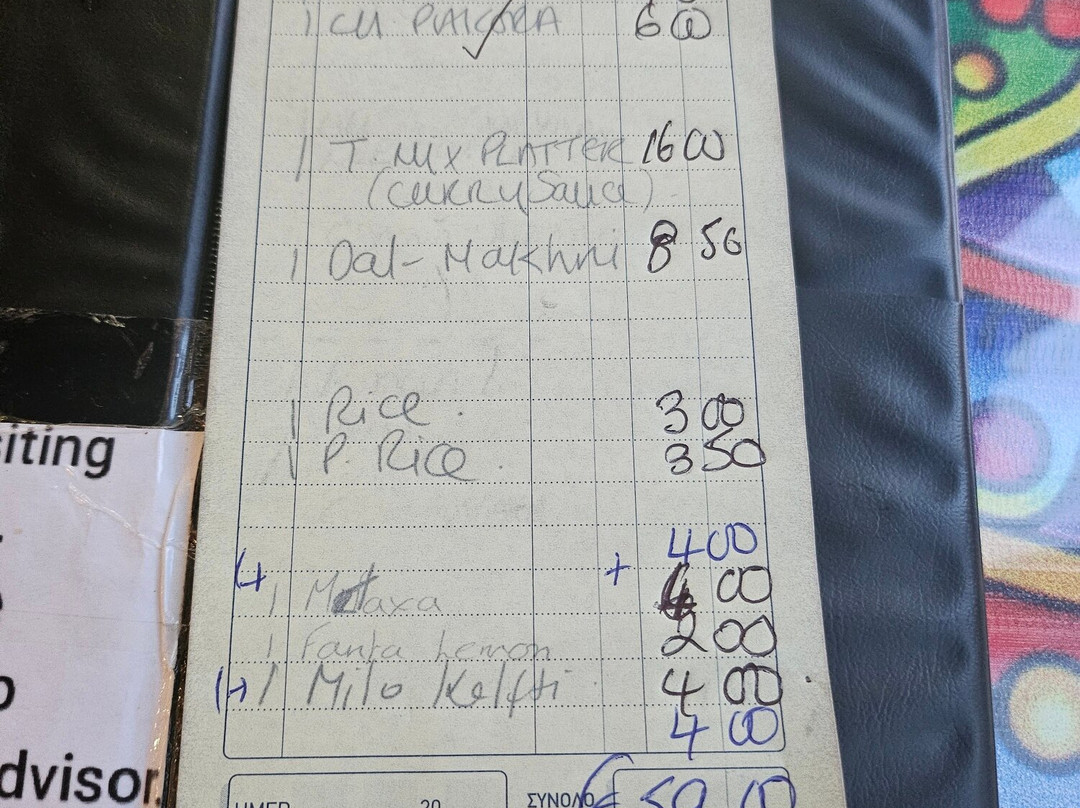 1 CH PAKORA 6 00
1 T. MIX PLATTER 16 00
(CURRY Sauce)
1 Dal- Makhni 8 50
1 Rice. 3 00
1 P. Rice. 3 50
4 00
(+ 1 Metaxa + 4 00
1 Fanta Lemon 2 00
(+) 1 Mito Kelfti 4 00
4 00
ΗΜΕΡ. 20
ΣΥΝΟΛΟ € 59 00
siting
dvisor